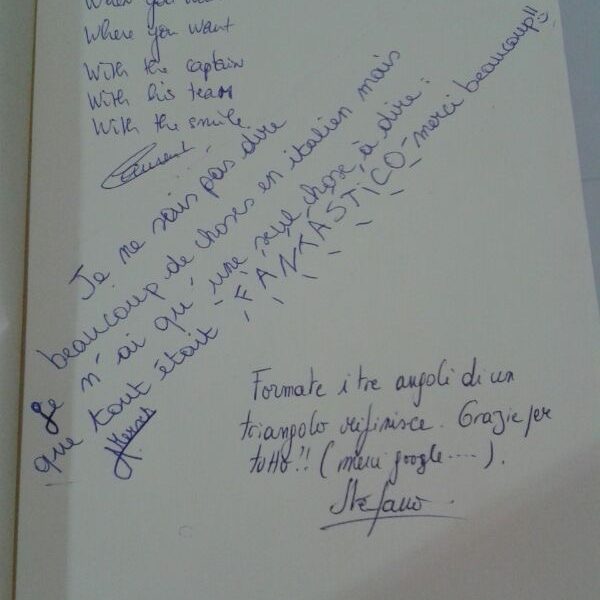 When you want
Where you want
With the captain
With his team
With the smile
Laurent
Je ne sais pas dire
beaucoup de choses en italien mais
Je n'ai qu'une seule chose à dire :
que tout était FANTASTICO merci beaucoup!!
Formate i tre angoli di un
triangolo rifinisce. Grazie per
tutto!! (merci google....).
Stefano.